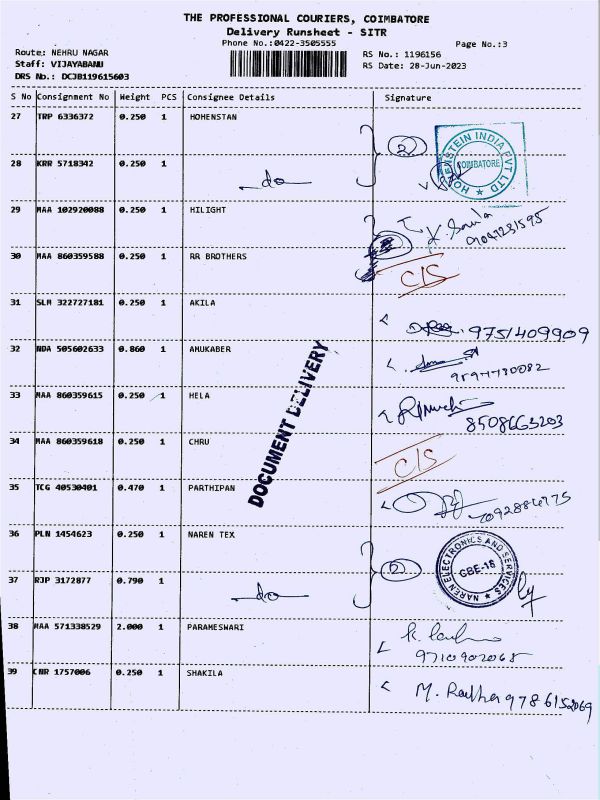 THE PROFESSIONAL COURIERS, COIMBATORE
Delivery Runsheet - SITR
Phone No.:0422-3505555
Page No.:3
Route: NEHRU NAGAR
RS No.: 1196156
Staff: VIJAYABANU
RS Date: 28-Jun-2023
DRS No.: DCJB119615603
S No Consignment No Weight PCS Consignee Details Signature
27 TRP 6336372 0.250 1 HOHENSTAN
2
HOHENSTEIN INDIA PVT LTD
COIMBATORE
28 KRR 5718342 0.250 1
do
29 MAA 102920088 0.250 1 HILIGHT
30 MAA 860359588 0.250 1 RR BROTHERS
C/S
31 SLM 322727181 0.250 1 AKILA
9751409909
32 NDA 505602633 0.860 1 AMUKABER
33 MAA 860359615 0.250 1 HELA
8508663203
34 MAA 860359618 0.250 1 CHRU
C/S
DOCUMENT DELIVERY
35 TCG 40530401 0.470 1 PARTHIPAN
36 PLN 1454623 0.250 1 NAREN TEX
NAREN ELECTRONICS AND SERVICES
CBE-18
37 RJP 3172877 0.790 1
do
38 MAA 571338529 2.000 1 PARAMESWARI
9710902065
39 CNR 1757006 0.250 1 SHAKILA
M. Radha 9786152069